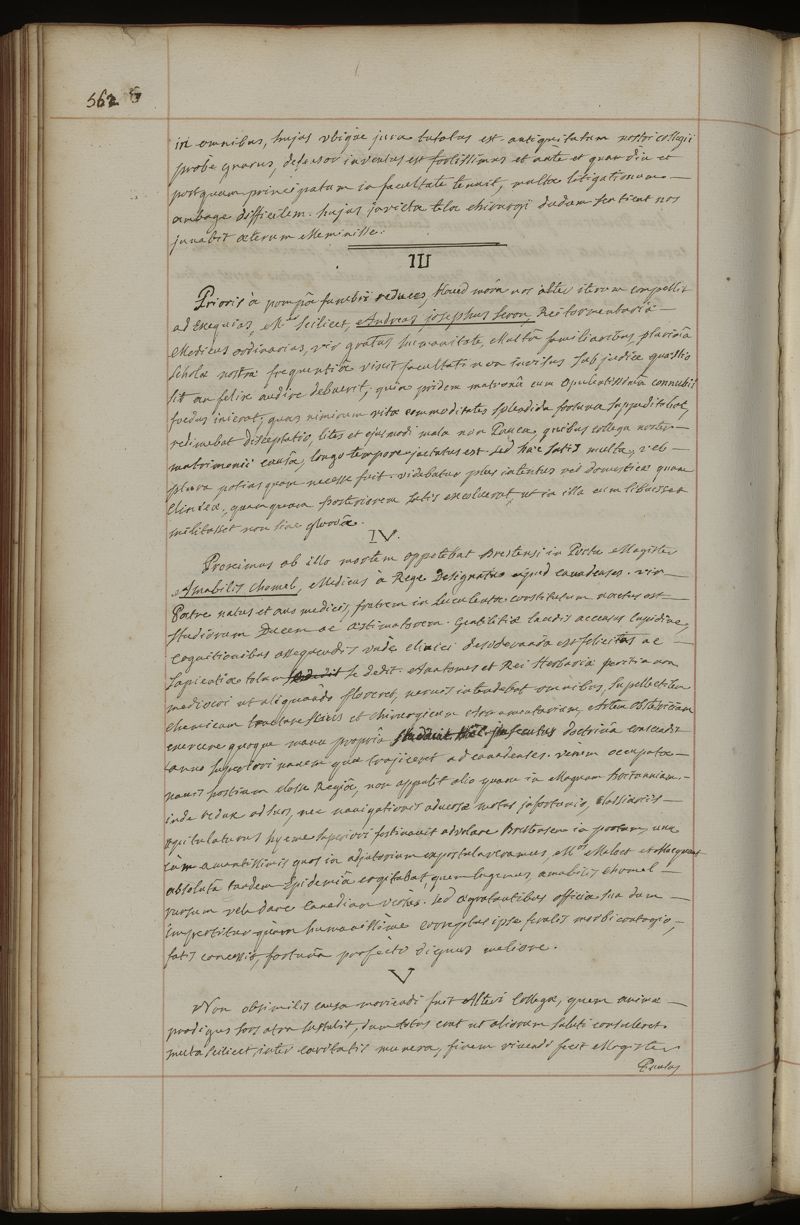 562
in omnibus, hujus ubique jura tutatus est. antiquitatum nostri collegii
probè gnarus, defensor inventus est fortissimus et antè et quamdiu et
postquam principatum in facultate tenuit, multa litigationum —
ambage difficilem. hujus invicta tela chirurgi dudum sentient nos
juvabit æternum Meminisse.
III
Prioris à pompâ funebri reduces, Haud mora nos alter iterum compellit
ad exequias, M. scilicet, Andreas josephus Seron, Rei tormentariæ —
Medicus ordinarius, vir gratus humanitate, Multâ familiaribus, plurimâ
scholæ nostræ frequentiâ visus facultati non invisus sub judice quæstio
sit an felix audire debuerit; quia pridem matronâ cum opulentissimâ connubii
foedus inierat, quas nimirum vitæ commoditates splendida fortuna suppeditabat,
redimebat disceptatio, lites et ejusmodi mala non Pauca, quibus collega noster —
matrimonii causâ, longo tempore jactatus est. sed hæc satis multa, vel —
plura potius quam necesse fuit. videbatur plus intentus rei domesticæ quam
Clinicæ, quamquam posteriorem satis excoluerat, ut in illa cum libuisset
militasset non sine gloriâ.
IV.
Proximus ab illo mortem oppetebat Brestensi in Portu Magister
Amabilis Chomel, Medicus à Rege Designatus apud canadenses. vir —
Patre natus et avo medicis, fratrem in luculenta constitutum nactus est —
studiorum Ducem ac æstimatorem. Gentilitiæ laudis accensus cupidine,
cognitionibus assequendis unde clinici desideranda est felicitas ac —
sapientia totum se dedit. Anatomes et Rei Herbariæ peritia non
mediocri ut aliquando floreret, nervos intendebat omnibus, supellectilem
chemicam tractare suevit et chirurgicum Armamentarium, Artem obstetriciam
exercere quoque manu propriâ doctrinâ conscendit
anno superiori navem quæ trajiceret ad canadenses. verùm occupata —
navis hostium classe Regiâ, non appulit alio quam in Magnam britanniam. —
inde redux ad suos, nec navigationis adversæ motus infortunio, classiariis —
opitulaturus hyeme superiori festinavit advolare Brestensem in portum, una
cùm amantissimis quos in adjutorium expostulaveramus, M. Maloet et
absolutâ tandem Epidemiâ cogitabat, quem lugemus amabilis chomel —
rursum vela dare canadian versùs. sed ægrotantibus officia sua dum —
impertitur quàm humanissime correptus ipse feralis morbi contagio, —
fatis concessit, fortunâ profecto dignus meliore.
V
Non absimilis causa moriendi fuit Alteri Collegæ, quem animæ —
prodigus sors atra sustulit, dum totus erat ut aliorum saluti consuleret.
muta scilicet, inter caritatis munera, finem vivendi fecit Magister
Paulus